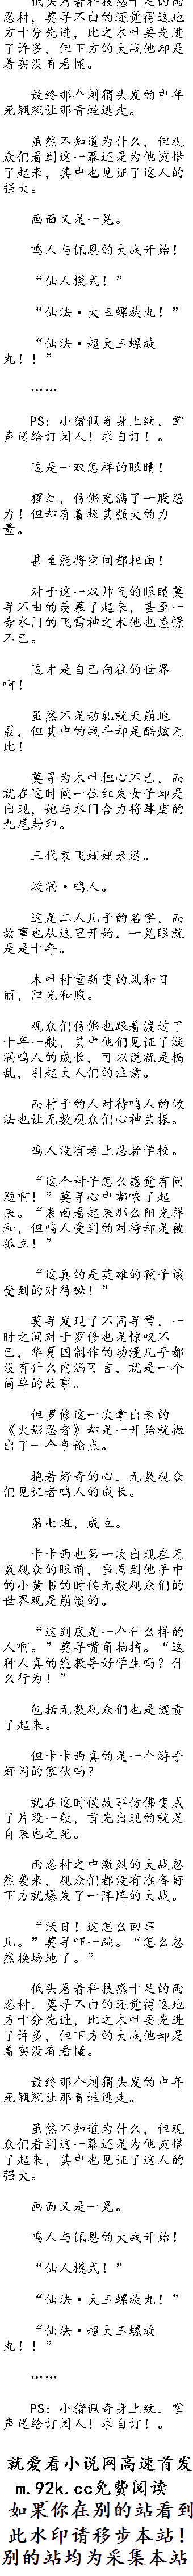 低头看着科技感十足的雨
忍村，莫寻不由的还觉得这地
方十分先进，比之木叶要先进
了许多，但下方的大战他却是
着实没有看懂。
最终那个刺猬头发的中年
死翘翘让那青蛙逃走。
虽然不知道为什么，但观
众们看到这一幕还是为他惋惜
了起来，其中也见证了这人的
强大。
画面又是一晃。
鸣人与佩恩的大战开始！
“仙人模式！”
“仙法·大玉螺旋丸！”
“仙法·超大玉螺旋
丸！！”
……
PS：小猪佩奇身上纹，掌
声送给订阅人！求自订！。
这是一双怎样的眼睛！
猩红，仿佛充满了一股怨
力！但却有着极其强大的力
量。
甚至能将空间都扭曲！
对于这一双帅气的眼睛莫
寻不由的羡慕了起来，甚至一
旁水门的飞雷神之术他也憧憬
不已。
这才是自己向往的世界
啊！
虽然不是动轧就天崩地
裂，但其中的战斗却是酷炫无
比！
莫寻为木叶担心不已，而
就在这时候一位红发女子却是
出现，她与水门合力将肆虐的
九尾封印。
三代袁飞姗姗来迟。
漩涡·鸣人。
这是二人儿子的名字，而
故事也从这里开始，一晃眼就
是是十年。
木叶村重新变的风和日
丽，阳光和煦。
观众们仿佛也跟着渡过了
十年一般，其中他们见证了漩
涡鸣人的成长，可以说就是捣
乱，引起大人们的注意。
而村子的人对待鸣人的做
法也让无数观众们心神共振。
鸣人没有考上忍者学校。
“这个村子怎么感觉有问
题啊！”莫寻心中嘟哝了起
来。“表面看起来那么阳光祥
和，但鸣人受到的对待却是被
孤立！”
“这真的是英雄的孩子该
受到的对待嘛！”
莫寻发现了不同寻常，一
时之间对于罗修也是惊叹不
已，华夏国制作的动漫几乎都
没有什么内涵可言，就是一个
简单的故事。
但罗修这一次拿出来的
《火影忍者》却是一开始就抛
出了一个争论点。
抱着好奇的心，无数观众
们见证者鸣人的成长。
第七班，成立。
卡卡西也第一次出现在无
数观众的眼前，当看到他手中
的小黄书的时候无数观众们的
世界观是崩溃的。
“这到底是一个什么样的
人啊。”莫寻嘴角抽搐。“这
种人真的能教导好学生吗？什
么行为！”
包括无数观众们也是谴责
了起来。
但卡卡西真的是一个游手
好闲的家伙吗？
就在这时候故事仿佛变成
了片段一般，首先出现的就是
自来也之死。
雨忍村之中激烈的大战忽
然袭来，观众们都没有准备好
下方就爆发了一阵阵的大战。
“沃日！这怎么回事
儿。”莫寻吓一跳。“怎么忽
然换场地了。”
低头看着科技感十足的雨
忍村，莫寻不由的还觉得这地
方十分先进，比之木叶要先进
了许多，但下方的大战他却是
着实没有看懂。
最终那个刺猬头发的中年
死翘翘让那青蛙逃走。
虽然不知道为什么，但观
众们看到这一幕还是为他惋惜
了起来，其中也见证了这人的
强大。
画面又是一晃。
鸣人与佩恩的大战开始！
“仙人模式！”
“仙法·大玉螺旋丸！”
“仙法·超大玉螺旋
丸！！”
……
PS：小猪佩奇身上纹，掌
声送给订阅人！求自订！。
就爱看小说网高速首发
m.92k.cc免费阅读
如果你在别的站看到
此水印请移步本站！
别的站均为采集本站